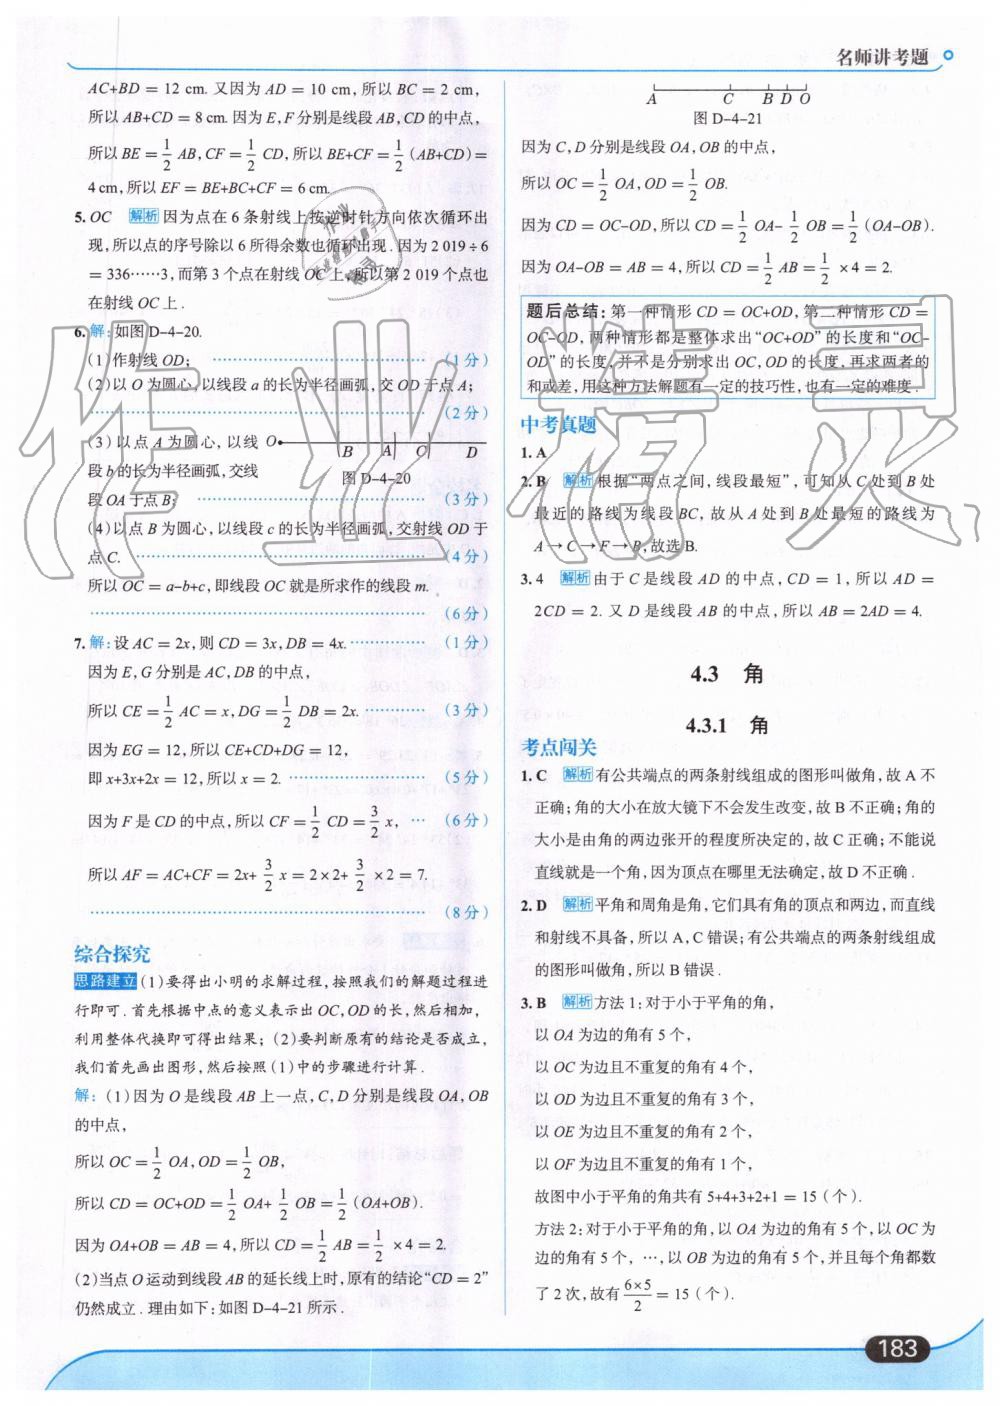 名师讲考题
AC+BD = 12 cm. 又因为 AD = 10 cm, 所以 BC = 2 cm,
所以 AB+CD = 8 cm. 因为 E, F 分别是线段 AB, CD 的中点,
所以 BE = 1/2 AB, CF = 1/2 CD, 所以 BE+CF = 1/2 (AB+CD) =
4 cm, 所以 EF = BE+BC+CF = 6 cm.
5. OC 解析 因为点在 6 条射线上按逆时针方向依次循环出
现, 所以点的序号除以 6 所得余数也循环出现. 因为 2 019÷6
= 336……3, 而第 3 个点在射线 OC 上, 所以第 2 019 个点也
在射线 OC 上.
6. 解: 如图 D-4-20.
(1) 作射线 OD; (1 分)
(2) 以 O 为圆心, 以线段 a 的长为半径画弧, 交 OD 于点 A;
(2 分)
(3) 以点 A 为圆心, 以线
段 b 的长为半径画弧, 交线
段 OA 于点 B; (3 分)
O B A C D
图 D-4-20
(4) 以点 B 为圆心, 以线段 c 的长为半径画弧, 交射线 OD 于
点 C. (4 分)
所以 OC = a-b+c, 即线段 OC 就是所求作的线段 m.
(6 分)
7. 解: 设 AC = 2x, 则 CD = 3x, DB = 4x. (1 分)
因为 E, G 分别是 AC, DB 的中点,
所以 CE = 1/2 AC = x, DG = 1/2 DB = 2x. (3 分)
因为 EG = 12, 所以 CE+CD+DG = 12,
即 x+3x+2x = 12, 所以 x = 2. (5 分)
因为 F 是 CD 的中点, 所以 CF = 1/2 CD = 3/2 x, … (6 分)
所以 AF = AC+CF = 2x+ 3/2 x = 2×2+ 3/2 ×2 = 7.
(8 分)
综合探究
思路建立 (1) 要得出小明的求解过程, 按照我们的解题过程进
行即可. 首先根据中点的意义表示出 OC, OD 的长, 然后相加,
利用整体代换即可得出结果; (2) 要判断原有的结论是否成立,
我们首先画出图形, 然后按照 (1) 中的步骤进行计算.
解: (1) 因为 O 是线段 AB 上一点, C, D 分别是线段 OA, OB
的中点,
所以 OC = 1/2 OA, OD = 1/2 OB,
所以 CD = OC+OD = 1/2 OA+ 1/2 OB = 1/2 (OA+OB).
因为 OA+OB = AB = 4, 所以 CD = 1/2 AB = 1/2 ×4 = 2.
(2) 当点 O 运动到线段 AB 的延长线上时, 原有的结论“CD = 2”
仍然成立. 理由如下: 如图 D-4-21 所示.
A C B D O
图 D-4-21
因为 C, D 分别是线段 OA, OB 的中点,
所以 OC = 1/2 OA, OD = 1/2 OB.
因为 CD = OC-OD, 所以 CD = 1/2 OA- 1/2 OB = 1/2 (OA-OB).
因为 OA-OB = AB = 4, 所以 CD = 1/2 AB = 1/2 ×4 = 2.
题后总结: 第一种情形 CD = OC+OD, 第二种情形 CD =
OC-OD, 两种情形都是整体求出“OC+OD”的长度和“OC-
OD”的长度, 并不是分别求出 OC, OD 的长度, 再求两者的
和或差, 用这种方法解题有一定的技巧性, 也有一定的难度.
中考真题
1. A
2. B 解析 根据“两点之间, 线段最短”, 可知从 C 处到 B 处
最近的路线为线段 BC, 故从 A 处到 B 处最短的路线为
A→C→F→B, 故选 B.
3. 4 解析 由于 C 是线段 AD 的中点, CD = 1, 所以 AD =
2CD = 2. 又 D 是线段 AB 的中点, 所以 AB = 2AD = 4.
4.3 角
4.3.1 角
考点闯关
1. C 解析 有公共端点的两条射线组成的图形叫做角, 故 A 不
正确; 角的大小在放大镜下不会发生改变, 故 B 不正确; 角的
大小是由角的两边张开的程度所决定的, 故 C 正确; 不能说
直线就是一个角, 因为顶点在哪里无法确定, 故 D 不正确.
2. D 解析 平角和周角是角, 它们具有角的顶点和两边, 而直线
和射线不具备, 所以 A, C 错误; 有公共端点的两条射线组成
的图形叫做角, 所以 B 错误.
3. B 解析 方法 1: 对于小于平角的角,
以 OA 为边的角有 5 个,
以 OC 为边且不重复的角有 4 个,
以 OD 为边且不重复的角有 3 个,
以 OE 为边且不重复的角有 2 个,
以 OF 为边且不重复的角有 1 个,
故图中小于平角的角共有 5+4+3+2+1 = 15 (个).
方法 2: 对于小于平角的角, 以 OA 为边的角有 5 个, 以 OC 为
边的角有 5 个, …, 以 OB 为边的角有 5 个, 并且每个角都数
了 2 次, 故有 6×5/2 = 15 (个).
183